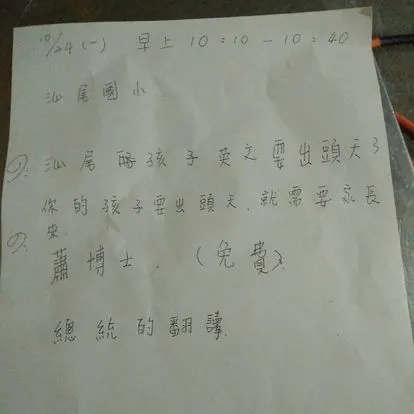 10/24 (一) 早上 10:10-10:40
汕尾國小
汕尾的孩子英文要出頭天了
你的孩子要出頭天.就需要家長
來.
蕭博士.(免費).
總統的翻譯.